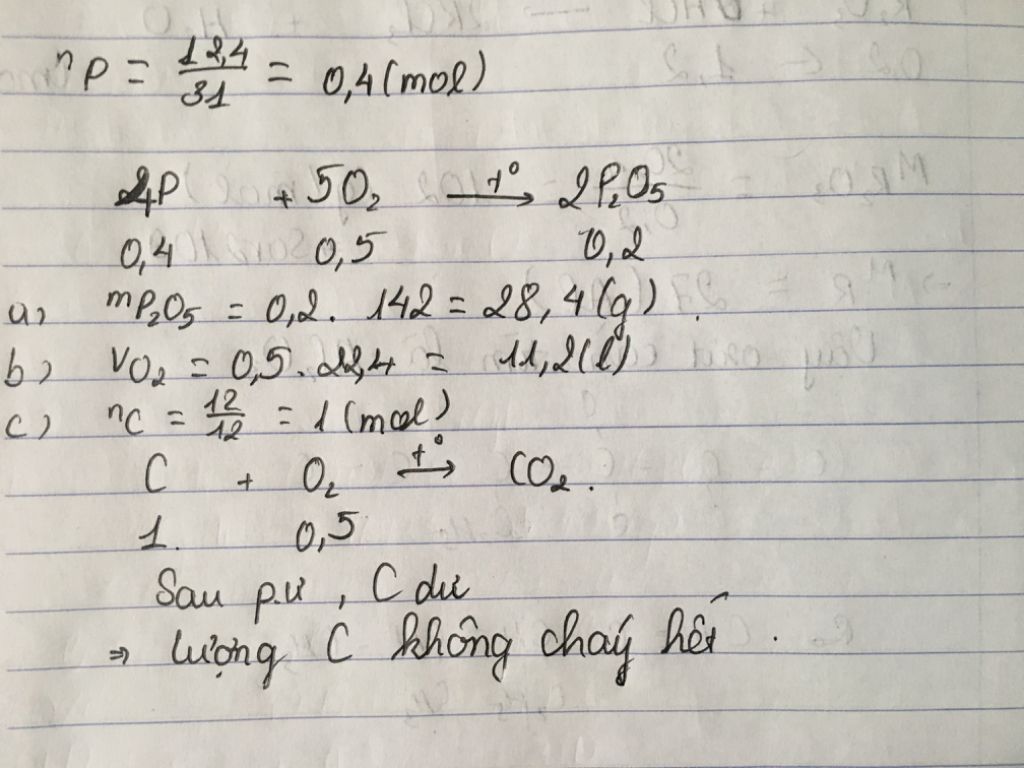 nP = 12,4/31 = 0,4 (mol)
4P + 5O₂ —t°→ 2P₂O₅
0,4 0,5 0,2
a) mP₂O₅ = 0,2 . 142 = 28,4 (g).
b) VO₂ = 0,5 . 22,4 = 11,2 (l)
c) nC = 12/12 = 1 (mol)
C + O₂ —t°→ CO₂.
1. 0,5
Sau p.ư, C dư
⇒ lượng C không chaý hết.